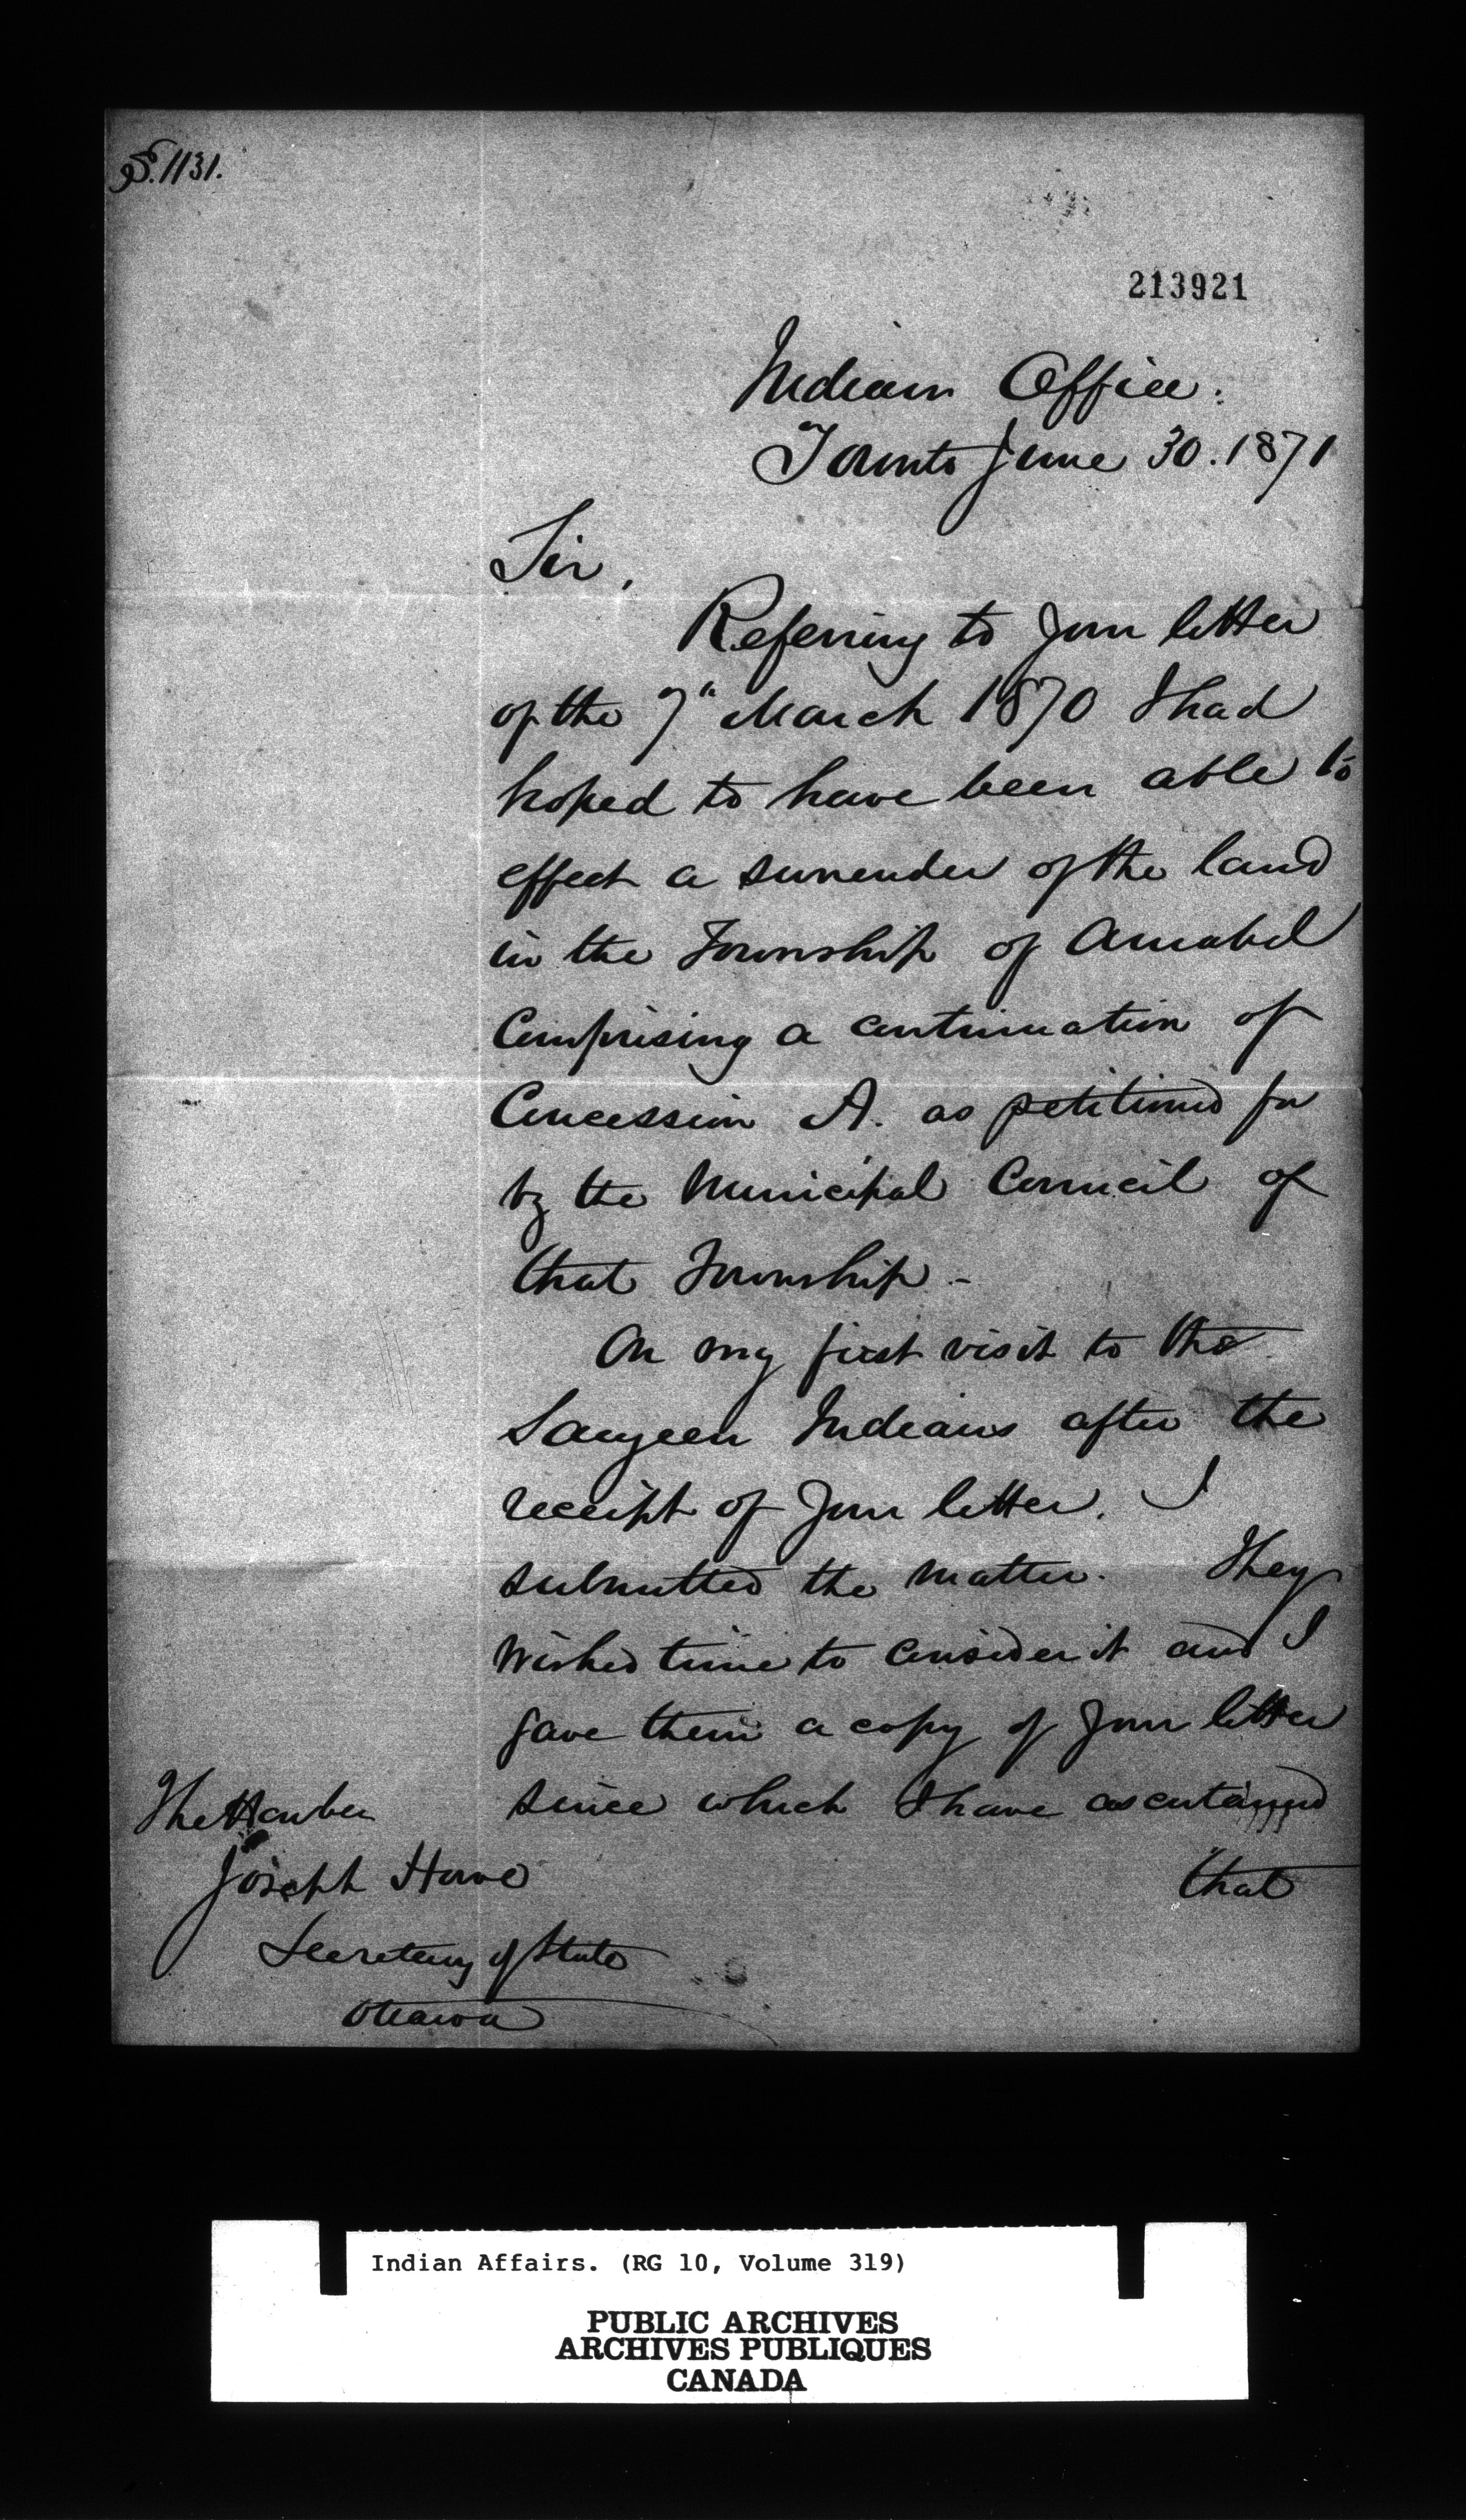 S. 1131.
213921
Indian Office:
Toronto June 30. 1871
Sir,
Referring to your letter
of the 7th March 1870 I had
hoped to have been able to
effect a surrender of the land
in the Township of Amabel
Comprising a continuation of
Concession A. as petitioned for
by the Municipal Council of
that Township -
On my first visit to the
Saugeen Indians after the
receipt of your letter, I
submitted the matter. They
wished time to consider it and I
gave them a copy of your letter
since which I have ascertained
that
The Honble
Joseph Howe
Secretary of State
Ottawa
Indian Affairs. (RG 10, Volume 319)
PUBLIC ARCHIVES
ARCHIVES PUBLIQUES
CANADA